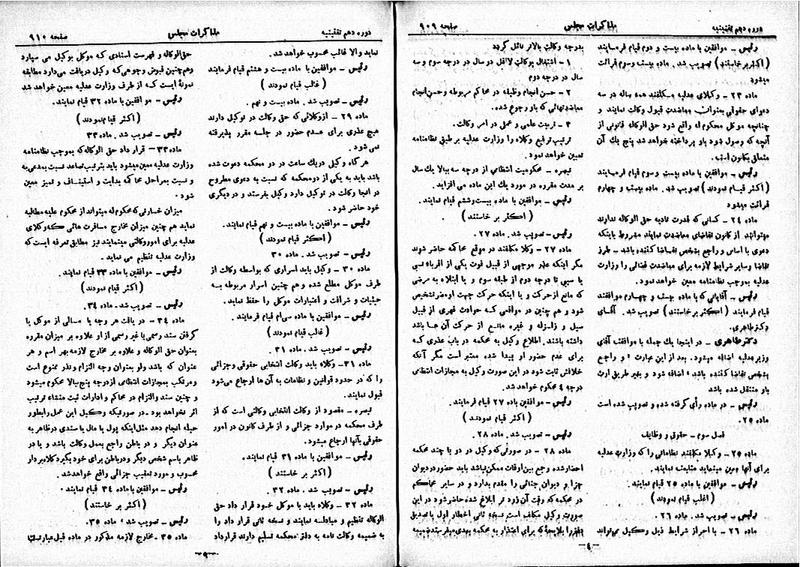 دوره دهم تقنینیه مذاکرات مجلس صفحه ۹۰۹
رئیس – موافقین با ماده بیست و دوم قیام فرمایند
(اکثر برخاستند) تصویب شد . ماده بیست و سوم قرائت
میشود
ماده ۲۳ – وکلای عدلیه مکلفند همه ساله در سه
دعوای حقوقی بعنوان معاضدت قبول وکالت نمایند و
چنانچه موکل محکوم له واقع شود حق الوکاله قانونی از
آنچه که وصول شود باو پرداخته خواهد شد پنج یک آن
متعلق بکانون است .
رئیس – موافقین با ماده بیست و سوم قیام فرمایند
(اکثر قیام نمودند) تصویب شد . ماده بیست و چهارم
قرائت میشود
ماده ۲۴ – کسانی که قدرت تادیه حق الوکاله ندارند
میتوانند از کانون تقاضای معاضدت نمایند مشروط باینکه
دعوی با اساس و راجع بشخص تقاضا کننده باشد . طرز
تقاضا و سایر شرایط لازمه برای معاضدت قضائی را وزارت
عدلیه بموجب نظامنامه معین خواهد نمود .
رئیس – آقایانی که با ماده بیست و چهارم موافقند
قیام فرمایند (اکثر برخاستند) تصویب شد . آقای
دکتر طاهری .
دکتر طاهری – در اینجا یک جمله با موافقت آقای
وزیر عدلیه اضافه میشود . بعد از این عبارت « و راجع
بشخص تقاضا کننده باشد » اضافه شود و بغیر طریق ارث
باو منتقل شده باشد
رئیس – در ماده رأی گرفته شده و تصویب شده است
ماده ۲۵ .
فصل سوم – حقوق و وظایف
ماده ۲۵ – وکلا مکلفند نظاماتی را که وزارت عدلیه
برای آنها معین مینماید متابعت نمایند .
رئیس – موافقین با ماده ۲۵ قیام نمایند
(اغلب قیام نمودند)
رئیس – تصویب شد . ماده ۲۶ .
ماده ۲۶ – با احراز شرایط ذیل وکیل میتواند
بدرجه وکالت بالاتر نائل گردد
۱ – اشتغال بوکالت لااقل دو سال در درجه سوم و سه
سال در درجه دوم
۲ – حسن انجام وظیفه در محاکم مربوطه و حسن انجام
معاضدتهائی که باو رجوع شده .
۳ – تربیت علمی و عملی در امر وکالت .
ترتیب ترفیع وکلاء را وزارت عدلیه بر طبق نظامنامه
معین خواهد نمود .
تبصره – محکومیت انتظامی از درجه سه ببالا یک سال
بر مدت مقرره در مورد یک این ماده می افزاید .
رئیس – موافقین با ماده بیست و ششم قیام نمایند .
(اکثر برخاستند)
رئیس – تصویب شد . ماده ۲۷ .
ماده ۲۷ – وکلا مکلفند در موقع محاکمه حاضر شوند
مگر اینکه عذر موجهی از قبیل فوت یکی از اقرباء نسبی
یا سببی تا درجه دوم از طبقه سوم و یا ابتلاء به مرضی
که مانع از حرکت و یا اینکه حرکت جهت او مضر تشخیص
شود و هم چنین در مواقعی که حوادث قهری از قبیل
سیل و زلزله و غیره مانع از حرکت آن ها باشد
داشته باشند . اطلاع وکیل به محکمه در باب عذری که
برای عدم حضور او پیدا شده معتبر است مگر آنکه
خلافش ثابت شود در این صورت وکیل به مجازات انتظامی
درجه ۴ محکوم خواهد شد.
رئیس – موافقین با ماده ۲۷ قیام فرمایند .
(اکثر قیام نمودند)
رئیس – تصویب شد . ماده ۲۸ .
ماده ۲۸ – در صورتی که وکیل در دو یا چند محکمه
احضار شده و جمع بین اوقات ممکن نباشد باید حضور در دیوان
جزا و دیوان جنائی را مقدم بدارد و در سایر محاکم
در محکمه که وقت آن زودتر ابلاغ شده حاضر شود در این
صورت وکیل مکلف است نسخه ثانی اخطار اول با تصدیق
– ۴ –
دوره دهم تقنینیه مذاکرات مجلس صفحه ۹۱۰
نماید والا غائب محسوب خواهد شد.
رئیس – موافقین با ماده بیست و هشتم قیام فرمایند
(غالب قیام نمودند)
رئیس – تصویب شد . ماده بیست و نهم .
ماده ۲۹ – از وکلائی که حق وکالت در توکیل دارند
هیچ عذری برای عدم حضور در جلسه مقرر پذیرفته
نمی شود .
هر گاه وکیل در یک ساعت در دو محکمه دعوت شده
باشد باید به یکی از دو محکمه که نسبت به دعوی مطروح
در آنجا وکالت در توکیل دارد وکیل بفرستد و در دیگری
خود حاضر شود .
رئیس – موافقین با ماده بیست و نهم قیام نمایند .
(اکثر قیام نمودند)
رئیس – تصویب شد . ماده ۳۰ .
ماده ۳۰ – وکیل باید اسراری که بواسطه وکالت از
طرف موکل مطلع شده و هم چنین اسرار مربوطه به
حیثیات و شرافت و اعتبارات موکل را حفظ نماید .
رئیس – موافقین با ماده سی ام قیام فرمایند .
(غالب قیام نمودند)
رئیس – تصویب شد . ماده ۳۱ .
ماده ۳۱ – وکلاء باید وکالت انتخابی حقوقی و جزائی
را که در حدود قوانین و نظامات به آنها ارجاع میشود
قبول نمایند .
تبصره – مقصود از وکالت انتخابی وکالتی است که از
طرف محکمه در موارد جزائی و از طرف کانون در امور
حقوقی بآنها ارجاع میشود .
رئیس – موافقین با ماده ۳۱ قیام نمایند .
(اکثر بر خاستند)
رئیس – تصویب شد . ماده ۳۲ .
ماده ۳۲ – وکلاء باید با موکل خود قرار داد حق
الوکاله تنظیم و مبادله نمایند و نسخه ثانی قرار داد را
به ضمیمه وکالت نامه به دفتر محکمه تسلیم دارند قرارداد
حق الوکاله و فهرست اسنادی که موکل بوکیل می سپارد
و هم چنین قبوض وجوهی که وکیل دریافت میدارد مطابق
نمونه ایست که از طرف وزارت عدلیه معین خواهد شد
رئیس – موافقین با ماده ۳۲ قیام نمایند .
(اکثر قیام نمودند)
رئیس – تصویب شد . ماده ۳۳
ماده ۳۳ – قرار داد حق الوکاله که بموجب نظامنامه
وزارت عدلیه معین میشود باید بترتیب تصاعد نسبت بمدعی به
و نسبت بمراحل محاکمه بدایت و استیناف و تمیز معین
شود .
میزان خسارتی که محکوم له میتواند از محکوم علیه مطالبه
نماید هم چنین میزان مخارج مسافرت هائی که وکلای
عدلیه برای امور وکالتی مینمایند نیز مطابق تعرفه ایست که
وزارت عدلیه تنظیم می نماید .
رئیس – موافقین با ماده ۳۳ قیام نمایند .
(اکثر قیام نمودند)
رئیس – تصویب شد . ماده ۳۴ .
ماده ۳۴ – دریافت هر وجه یا مالی از موکل یا
گرفتن سند رسمی یا غیر رسمی از او علاوه بر میزان مقرره
بعنوان حق الوکاله و علاوه بر مخارج لازمه بهر اسم و هر
عنوان که باشد ولو بعنوان وجه التزام و نذر ممنوع است
و مرتکب بمجازات انتظامی از درجه پنج ببالا محکوم میشود
و چنین سند و التزام در محاکم و ادارات ثبت منشاء ترتیب
اثر نخواهد بود . در صورتیکه وکیل این عمل را بطور
حیله انجام دهد مثل اینکه پول یا مال یا سندی در ظاهر به
عنوان دیگر و در باطن راجع بعمل وکالت باشد و یا در
ظاهر باسم شخص دیگر و در باطن برای خود بگیرد کلاه بردار
محسوب و مورد تعقیب جزائی واقع خواهد شد.
رئیس – موافقین با ماده ۳۴ قیام نمایند .
(اکثر بر خاستند)
رئیس – تصویب شد ، ماده ۳۵ .
ماده ۳۵ – مخارج لازمه مذکور در ماده قبل عبارتست
– ۵ –